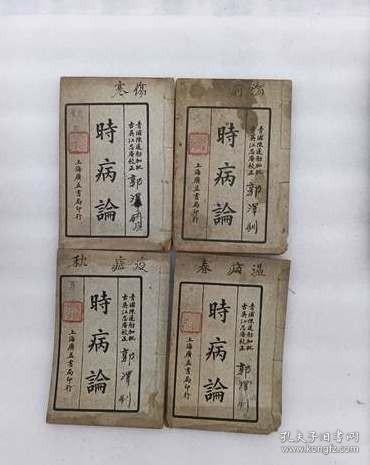 傷寒
青浦陳蓮舫加批
古吳江忍庵校正
時病論
上海廣益書局印行
郭澤
青浦陳蓮舫加批
古吳江忍庵校正
時病論
上海廣益書局印行
郭澤釗
疫症 秋
青浦陳蓮舫加批
古吳江忍庵校正
時病論
上海廣益書局印行
郭澤釗
溫病 春
青浦陳蓮舫加批
古吳江忍庵校正
時病論
上海廣益書局印行
郭澤釗
孔夫子旧书网
kongfz.com